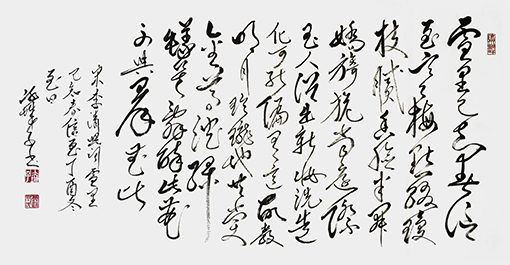 雪里已知春信
至寒梅点缀琼
枝腻香脸半开
娇旖旎当庭际
玉人浴出新妆洗造
化可能偏有意故教
明月玲珑地共赏
金尊沉绿
蚁莫辞醉此花
不与群花比
宋李清照词雪里
已知春信至丁酉冬
至日
书